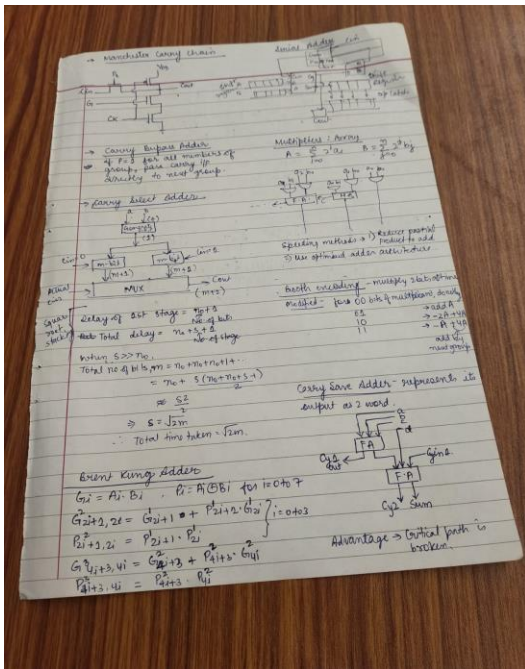 → Manchester Carry Chain
VDD
Cout
G
CK
→ Carry Bypass Adder
if P=1 for all members of
group, pass carry i/p
directly to next group.
→ Carry Select Adder
m-bits
m-bit
Cin=1
(m+1)
(m+1)
MUX
Cout
(m+2)
Actual
Cin
Square
root
stack
Delay of 1st stage = n₀+1
No. of bits
Total delay = n₀+s+1
No. of stage
When s>>n₀,
Total no of bits, m = n₀+n₀+n₀+1+..
= n₀+ s(n₀+n₀+s-1)
2
≈ s²
2
⇒ s = √2m
∴ Total time taken = √2m.
Brent Kung Adder
Gi = Ai·Bi , Pi = Ai⊕Bi for i=0 to 7
G²2i+1,2i = G¹2i+1 + P¹2i+1·G¹2i
P²2i+1,2i = P¹2i+1·P¹2i
i=0 to 3
G³4i+3,4i = G²4i+3 + P²4i+3·G²4i
P³4i+3,4i = P²4i+3·P²4i
Serial Adder
Cin
Shift
Register
Multipliers: Array
A = Σ 2ⁱai B = Σ 2ʲbj
F A
HA
Speeding methods → 1) Restrict partial
product to add
2) Use optimized adder architecture
Booth encoding - multiply 2 bits at once
Modified -
00
01 → add A
10 → -2A+4A
11 → -A+4A
add to
next group
Carry Save Adder - represents its
output as 2 word.
a
d
FA
Cy1
out
Cyin1
F·A
Cy2 Sum
Advantage → Critical path is
broken.